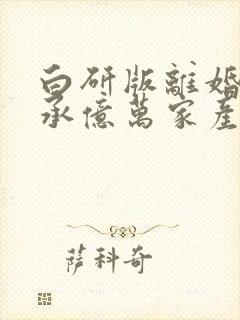 白研版離婚
承億萬家產
薩科奇